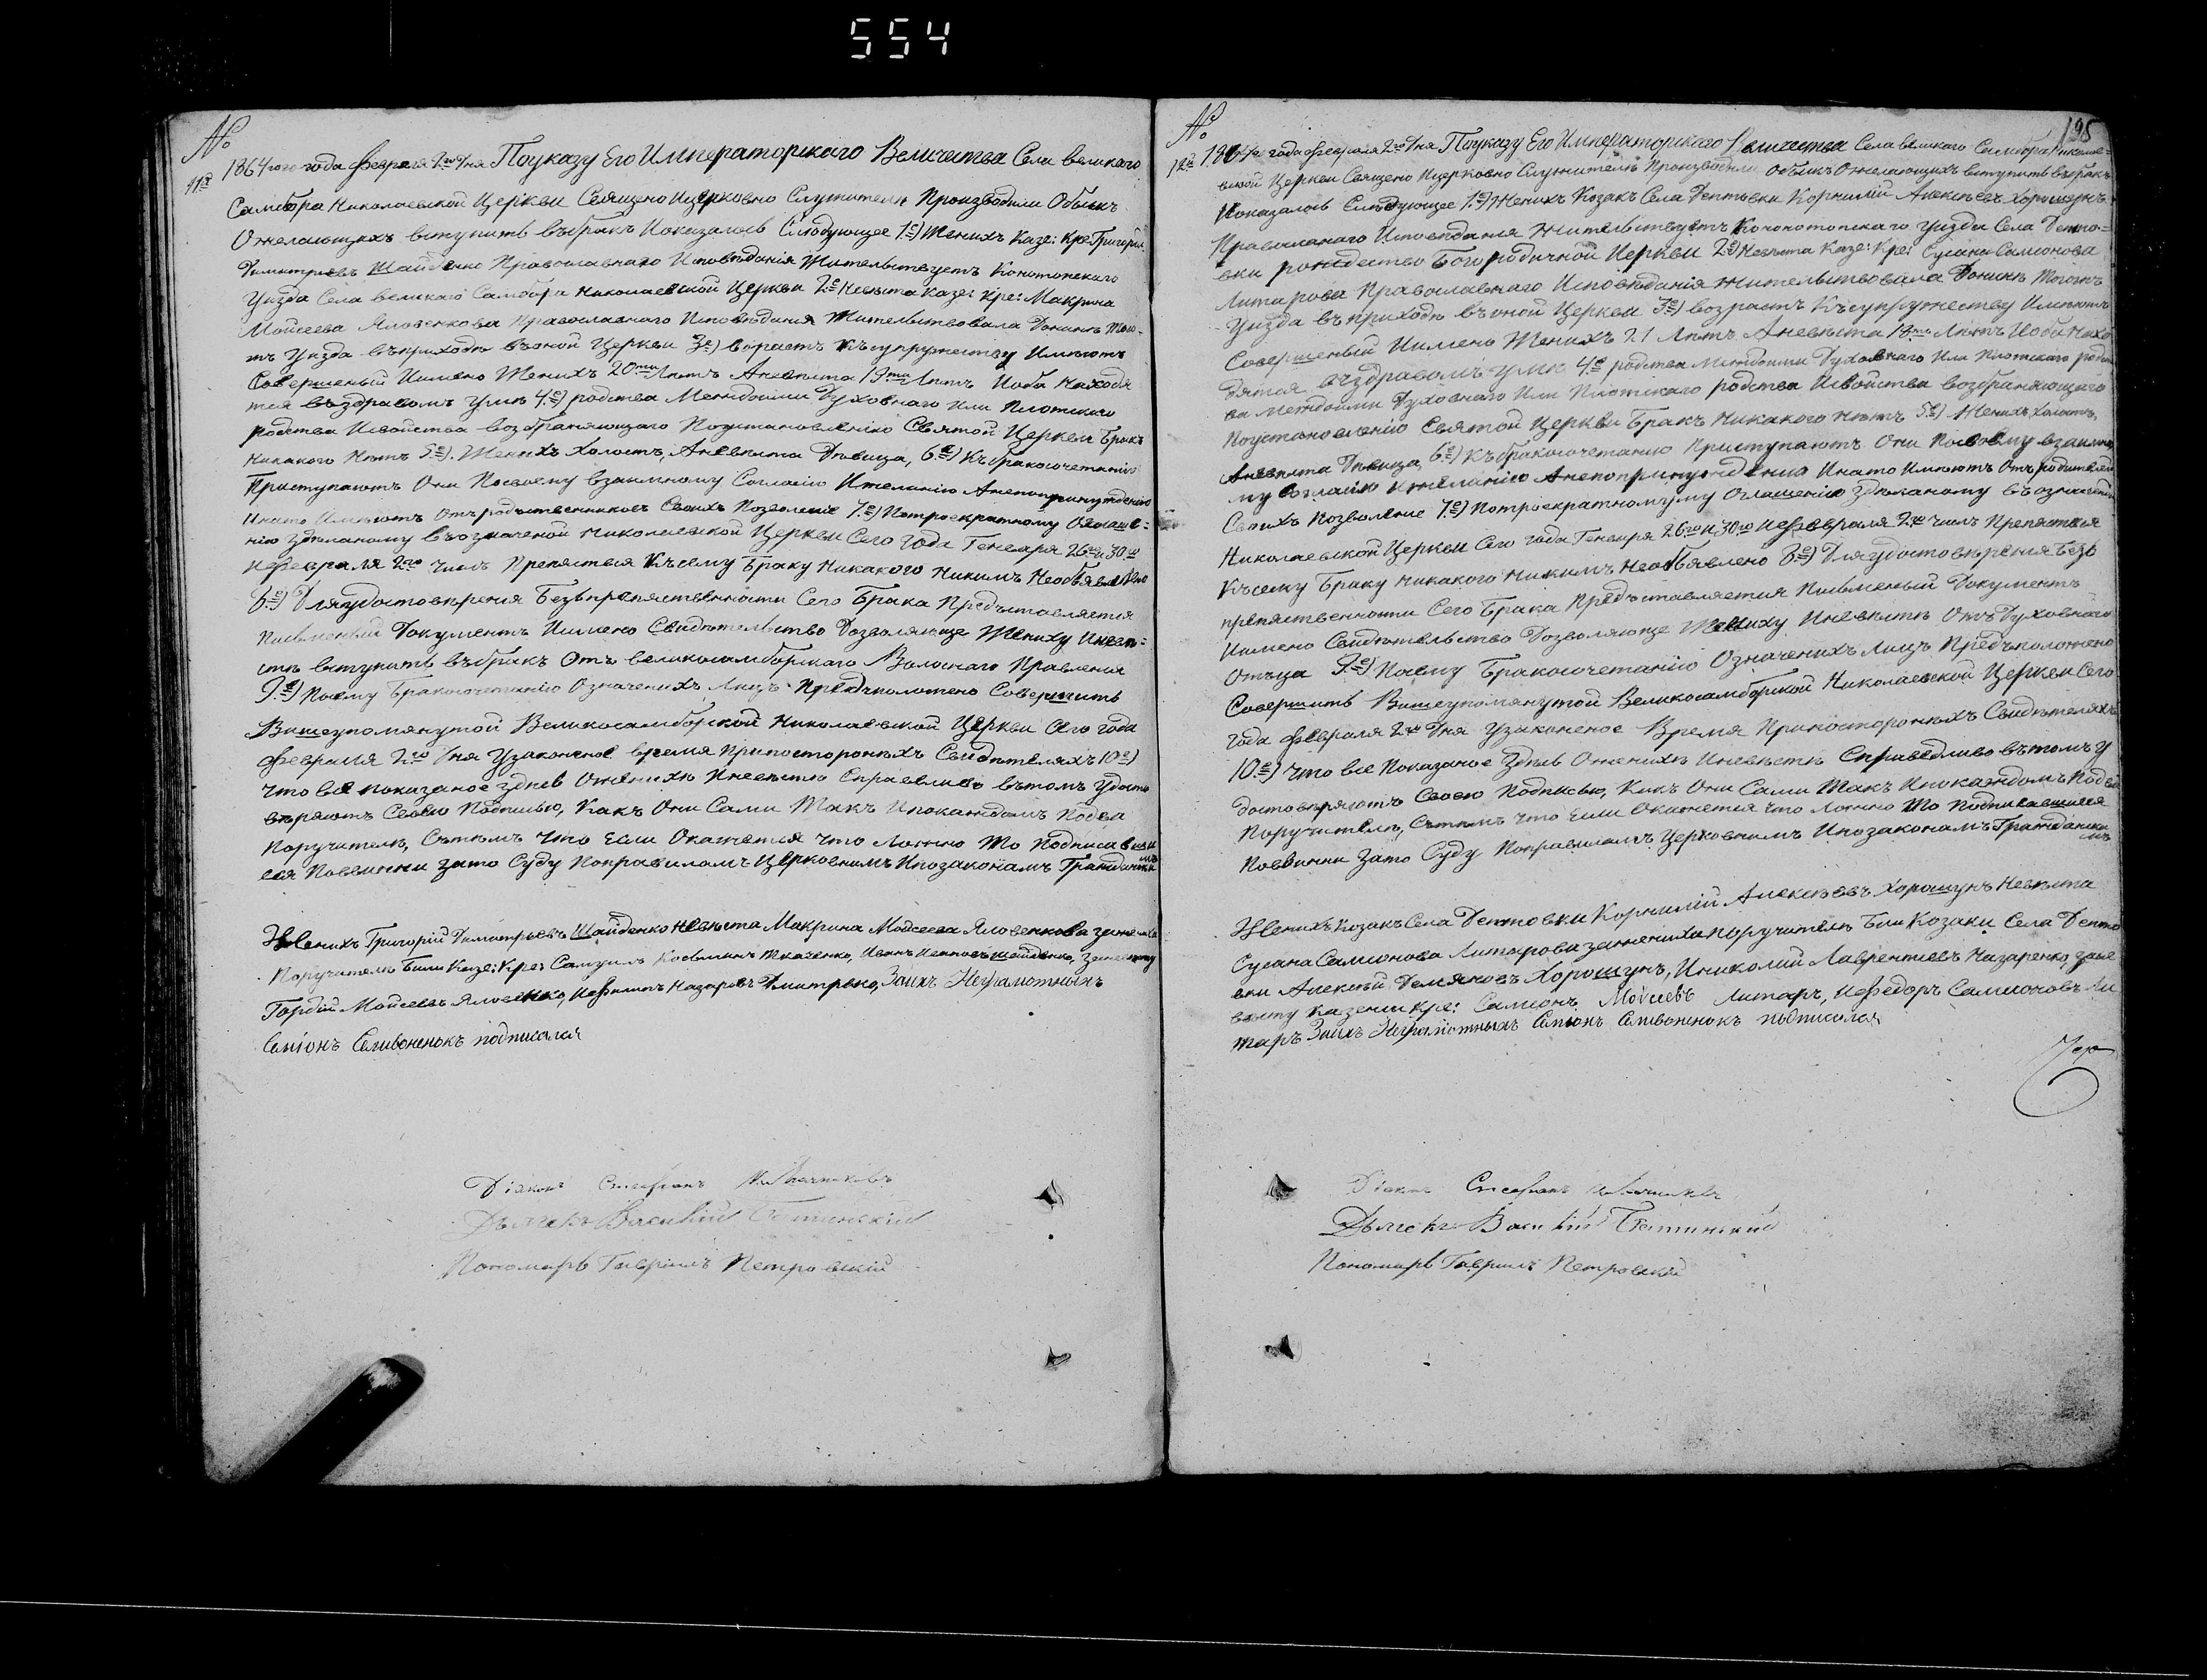 554
№
11й 1864го года февраля 2го дня По указу Его Императорскаго Величества Села великаго
Самбора Николаевской Церкви Священо Ицерковно Служители Производили Обыск
Ожелающихъ вступить вбракъ Показалось Следующее 1е) Женихъ Казе: Кре: Григорій
Димитріевъ Шайденко Православнаго Исповѣданія Жительствуетъ Конотопскаго
Уизда Села великаго Самбора Николаевской Церкви 2е) Невѣста Казе: Кре: Макрина
Мойсеева Яловенкова Православнаго Исповѣданія Жительствовала Донинѣ Того-
тъ Уизда въприходѣ въоной Церкви 3е) возрастъ Къ супружеству Имѣютъ
Совершеный Иимено Женихъ 20ти Лѣтъ Аневѣста 19ти Лѣтъ Иоба Находя
тся въздравомъ Умѣ 4е) родства Междоими Духовнаго Или Плотскаго
родства Исвойства возбраняющаго Поустановленію Святой Церкви Бракъ
Никакого Нѣтъ 5е). Женихъ Холостъ, Аневѣста Дѣвица, 6е) Къбракосочетанію
Приступаютъ Они Посвоему взаимному Согласію Ижеланію Анепопринужденію
Инато Имѣютъ Отъродственниковъ Своихъ Позволеніе 7е) Потроекратному Оглаше-
нію Здѣланому въозначеной Николаевской Церкви Сего Года Генваря 26го и 30го
Ифевраля 2го Числъ Препятствія Къ сему Браку Никакого Никимъ Необъявлено
8е) Дляудостовѣренія Безъпрепятственности Сего Брака Предъставляется
Письменый Документъ Иимено Свидѣтельство Дозволяюще Жениху Иневѣ-
стѣ вступить въбракъ Отъ великосамборскаго Волоснаго Правленія
9е) Посему Бракосочетанію Означеныхъ Лицъ Предъположено Совершить
Вишеупомянутой Великосамборской Николаевской Церкви Сего года
февраля 2го дня Узаконеное время Припосторонихъ Свидѣтеляхъ 10е)
что всѣ показаное здѣсь Оженихѣ Иневѣстѣ Справливо вътомъ Удосто
вѣряютъ Своею Подписью, Какъ Они Сами Такъ Ипокаждомъ Подва
Поручителѣ, Сътѣмъ что Если Окажется что Ложно То Подписавши
еся Повинни зато Суду Поправиламъ Церковнимъ Ипозаконамъ Граждански
мъ
Женихъ Григорій Димитріевъ Шайденко Невѣста Макрина Мойсеева Яловенкова зажениха
Поручители Били Казе: Кре: Самуилъ Ткаченко, Иванъ Ивановъ Шайденко, Заневѣсту
Гордій Мойсеевъ Яловенко, Ифилипъ Назаровъ Дмитренко, Заихъ Неграмотныхъ
Семіонъ Сливоненокъ подписался
Діяконъ Стефанъ
Дьячекъ Василій
Пономарь Гавріилъ Петровскій
195
№
12й 1864го года февраля 2го дня По указу Его Императорскаго Величества Села великаго Самбора Николае-
вской Церкви Священо Ицерковно Служителѣ Производили Обыскъ Ожелающихъ вступить въбракъ
Показалось Слѣдующее 1е) Женихъ Козакъ Села Дептовки Корнилій Алексѣевъ Хорошунъ
Православнаго Исповѣданія Жительствуетъ Конотопскаго Уизда Села Депто-
вки рождество Богородичной Церкви 2е) Невѣста Казе: Кре: Сусана Самионова
Литарова Православнаго Исповѣданія Жительствовала Донинѣ Тогожъ
Уизда въприходѣ въоной Церкви 3е) возрастъ Къ супружеству Имѣютъ
Совершеный Иимено Женихъ 21 Лѣтъ Аневѣста 18ти Лѣтъ Иоба Нахо
дятся въздравомъ умѣ 4е родства Междоими Духовнаго Или Плотскаго родс
ва Междоими Духовнаго Или Плотскаго родства Исвойства возбраняющаго
Поустановленію Святой Церкви Бракъ Никакого Нѣтъ 5е) Женихъ Холостъ,
Аневѣста Дѣвица, 6е) Къбракосочетанію Приступаютъ Они Посвоему взаимно
му Согласію Ижеланію Анепопринужденію Инато Имѣютъ Отъ родителей
Своихъ Позволеніе 7е) Потроекратномуму Оглашенію Здѣланому въозначеной
Николаевской Церкви Сего года Генваря 26го и 30го Ифевраля 2го Числъ Препятствія
Къ сему Браку Никакого Никимъ Необъявлено 8е) Дляудостовѣренія Безъ
препятственности Сего Брака Предъставляется Письменый Документъ
Иимено Свидѣтельство Дозволяюще Жениху Иневѣстѣ Отъ Духовнаго
Отъца 9е) Посему Бракосочетанію Означеныхъ Лицъ Предъположено
Совершить Вишеупомянутой Великосамборской Николаевской Церкви Сего
года февраля 2го дня Узаконеное Время Припосторонихъ Свидѣтеляхъ
10е) Что все Показаное Здѣсь Оженихѣ Иневѣстѣ Справедливо вътомъ У
достовѣряютъ Своею Подписью, Какъ Они Сами Такъ Ипокаждомъ Подва
Поручителѣ, Сътѣмъ что Если Окажется что Ложно То Подписавшиеся
Повинни зато Суду Поправиламъ Церковнимъ Ипозаконамъ Граждански
мъ
Женихъ Козакъ Села Дептовки Корнилій Алексѣевъ Хорошунъ Невѣста
Сусана Самионова Литарова зажениха Поручителѣ Били Козаки Села Депто
вки Алексѣй Демяновъ Хорошунъ, Иниколай Лаврентіевъ Назаренко, зане
вѣсту казении Кре: Самионъ Мойсеевъ Литаръ, Ифедоръ Самионовъ Ли
таръ Заихъ Неграмотныхъ Семіонъ Сливоненокъ подписался
Діяконъ Стефанъ
Дьячекъ Василій
Пономарь Гавріилъ Петровскій